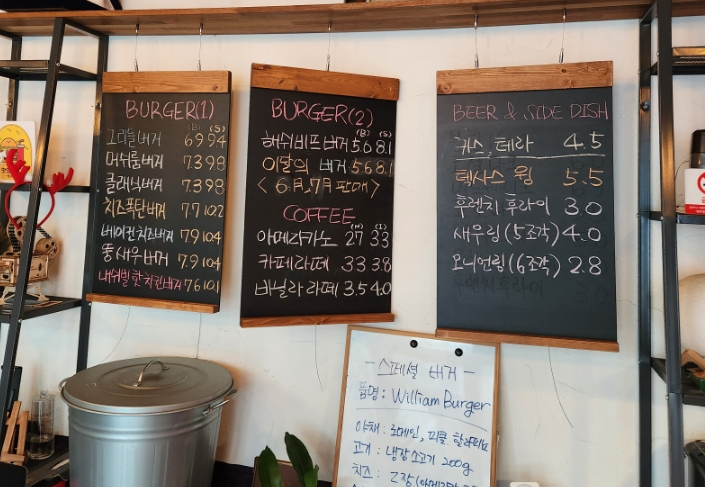 BURGER(1)
(B) (S)
그리들버거 6.9 9.4
머쉬룸버거 7.3 9.8
클래식버거 7.3 9.8
치즈폭탄버거 7.7 10.2
베이컨치즈버거 7.9 10.4
통새우버거 7.9 10.4
내쉬빌핫치킨버거 7.6 10.1
BURGER(2)
(B) (S)
해쉬비프버거 5.6 8.1
이달의 버거 5.6 8.1
<6월,7월 판매>
COFFEE
(H) (I)
아메리카노 2.7 3.3
카페라떼 3.3 3.8
바닐라라떼 3.5 4.0
BEER & SIDE DISH
카스, 테라 4.5
텍사스 윙 5.5
후렌치 후라이 3.0
새우링(5조각) 4.0
오니언링(6조각) 2.8
후렌치후라이
-스페셜 버거-
품명: William Burger
야채: 로메인, 피클, 할라피뇨
고기: 냉장소고기 200g
치즈: 2장